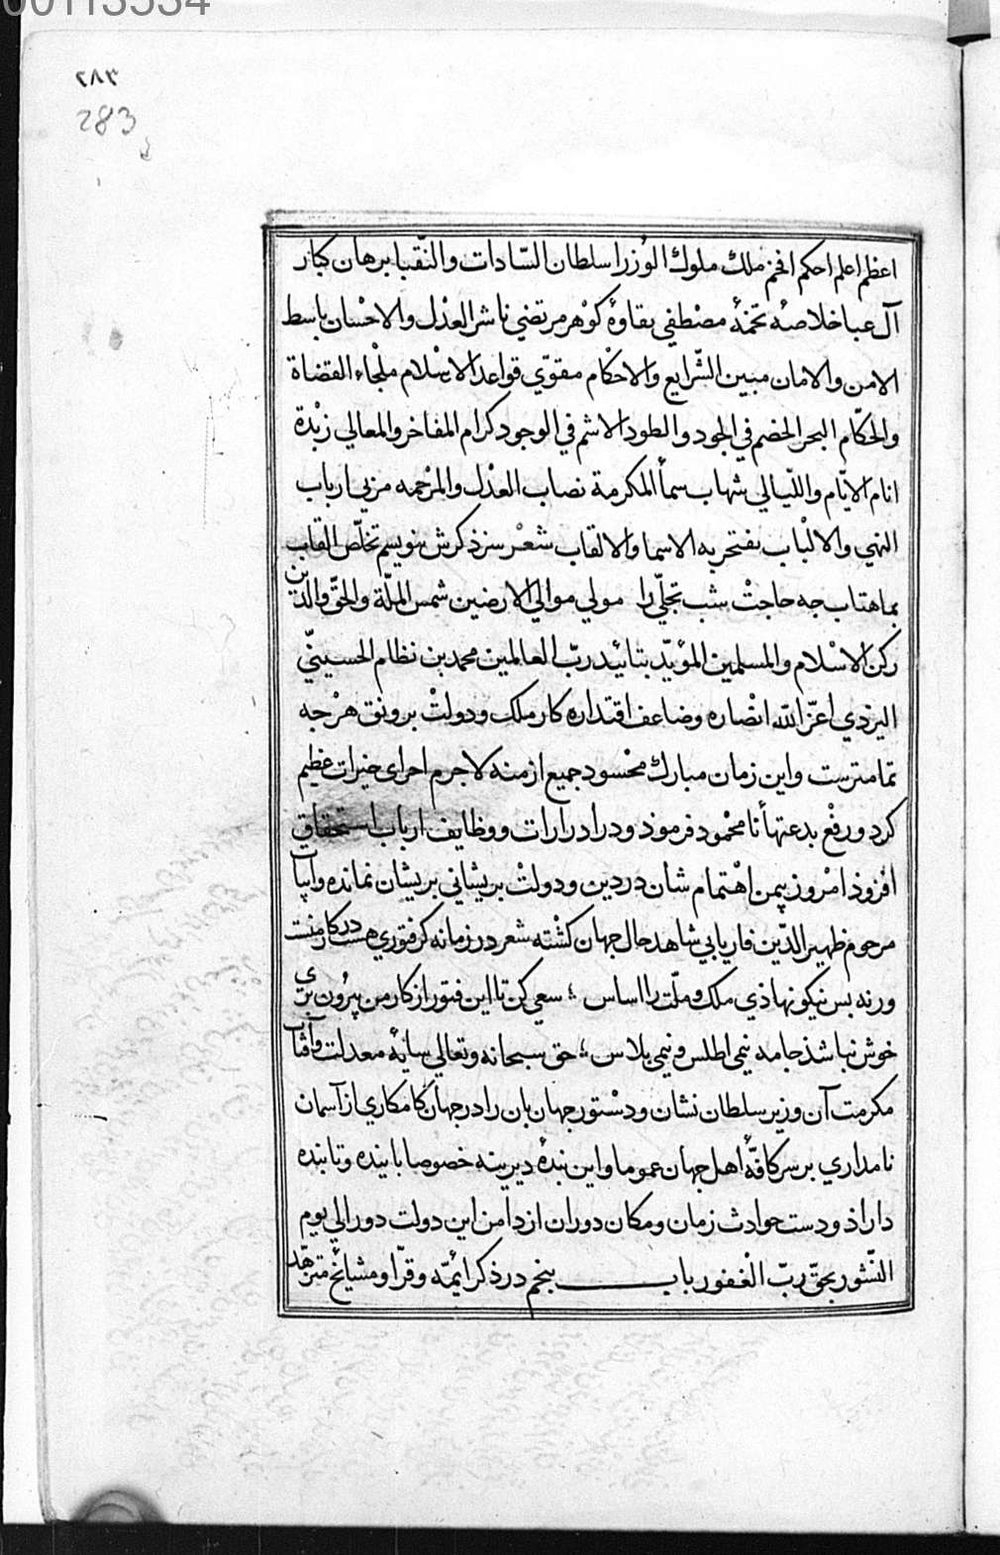 00113534
۲۸۳
283
اعظم اعلم احکم افخم ملك ملوك الوُزرا سلطان السّادات والنّقبا برهان كبار
آل عبا خلاصهٔ تخمهٔ مصْطفي بقاوهٔ كوْهر مرتضي ناشر العدْل والاحْسان باسط
الامن والامان مبين الشّرايع والاحْكام مقوّي قواعد الاسْلام ملْجاء القضاة
والحكّام البحر الخضم في الجود والطود الاشم في الوجود كرام المفاخر والمعالي زبْدة
انام الايّام واللّيالي شهاب سمأ المكرمة نصاب العدْل والمرْحمه مربي ارباب
النهي والالْباب يفتخر به الاسما والالقاب شعْر سزذ كرش بنويسم تخلّص القاب
بماهتاب جه حاجتْ شب تجلّي را مولي موالي الارضين شمس الملّة والحقّ والدّين
ركن الاسْلام والمسلمين المؤيّد بتائيد ربّ العالمين محمد بن نظام الحسينيّ
اليزدي اعزّ الله انْصاره وضاعف اقتداره كار ملك ودولتْ برونق هرْجه
تمامترست واين زمان مبارك محْسود جميع ازمنه لاجرم اجراى خيرات عظيم
كرد ورفْع بدعتهأ نا محْمود فرموذ ودر ادرارات ووظايف ارباب استحقاق
افزوذ امْروز بيمن اهْتمام شان در دين ودولتْ بريشاني بريشان نمانده وابيات
مرحوم ظهير الدّين فاريابي شاهد حال جهان كشْته شعر در زمانه كر فتوري هست در كار منست
ورنه بس نيكو نهاذي ملك وملّت را اساس ؛ سعي كن تا اين فتور از كار من بيرُون بري
خوش نباشذ جامه نيمى اطلس ونيمى بلاس ؛ حق سبحانه وتعالي سايهٔ معدلت وآفتاب
مكرمت آن وزير سلطان نشان ودسْتور جهان بان را در جهان كامكاري از آسمان
نامداري بر سر كافّهٔ اهل جهان عموما واين بندهٔ ديرينه خصوصا باينده وتابنده
داراذ ودست حوادث زمان ومكان دوران از دامن اين دولت دور الي يوم
النّشور بحق ربّ الغفور باب بنجم در ذكر ايمّه وقرّا ومشائخ متزهّد